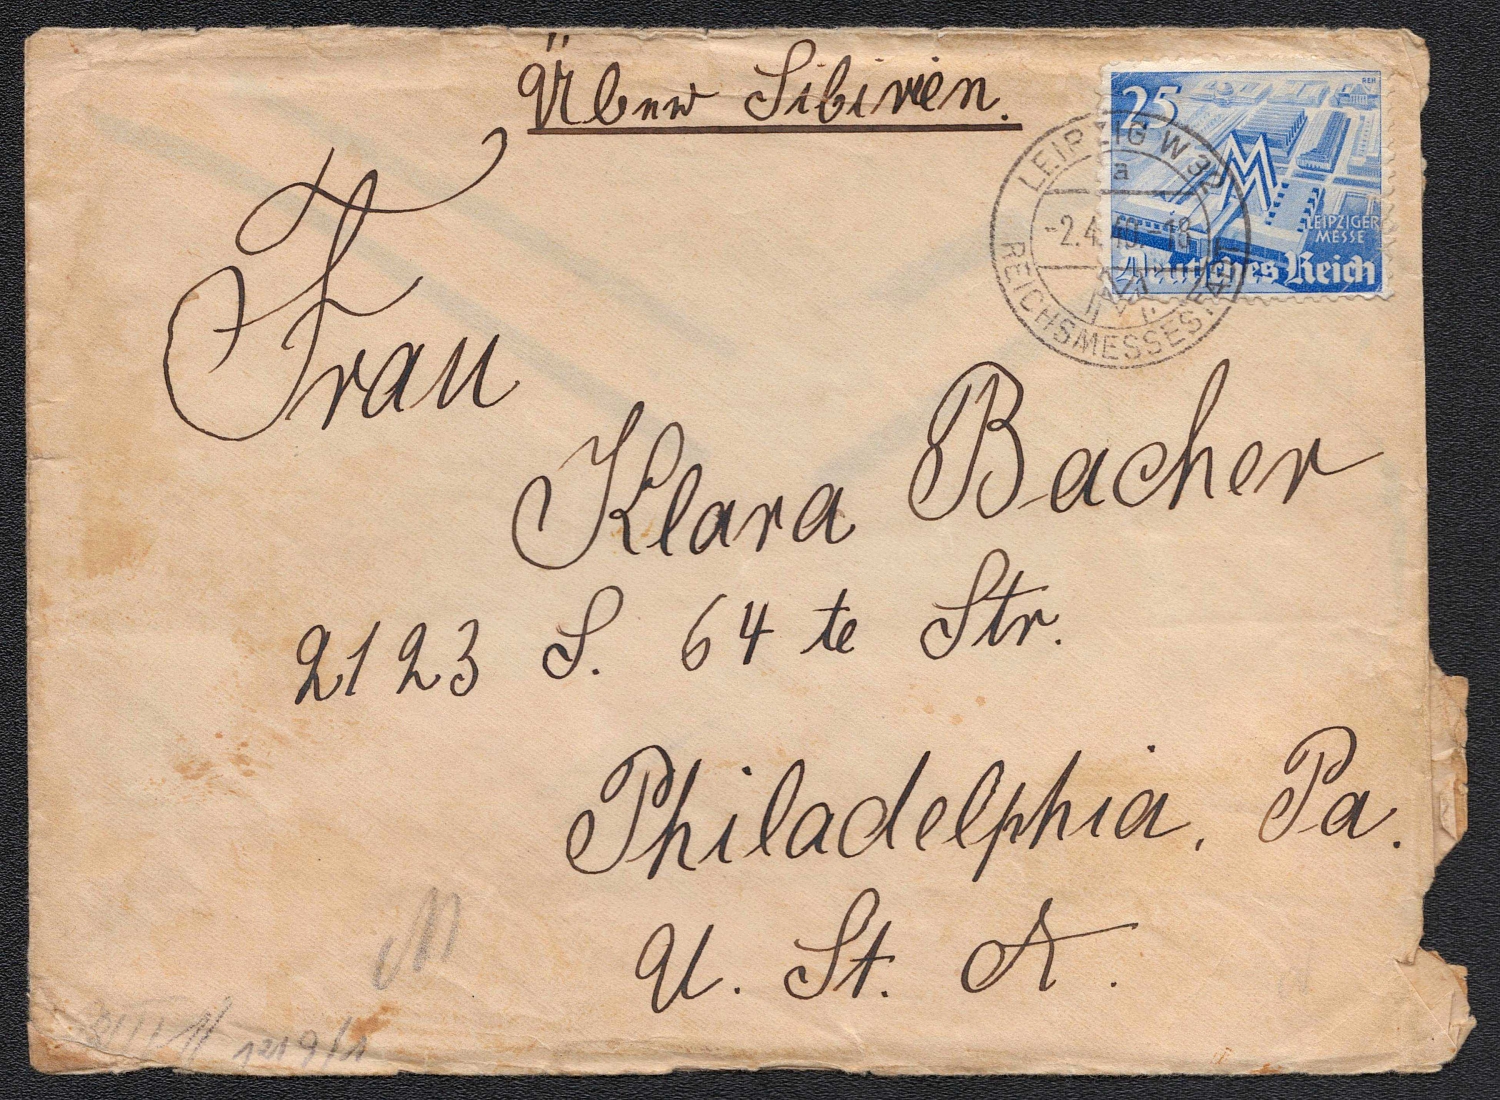 Über Sibirien.
25
LEIPZIGER
MESSE
Deutsches Reich
LEIPZIG W 32
a
-2.4.40.-18
REICHSMESSESTADT
Frau
Klara Bacher
2123 S. 64 te Str.
Philadelphia, Pa.
U. St. A.